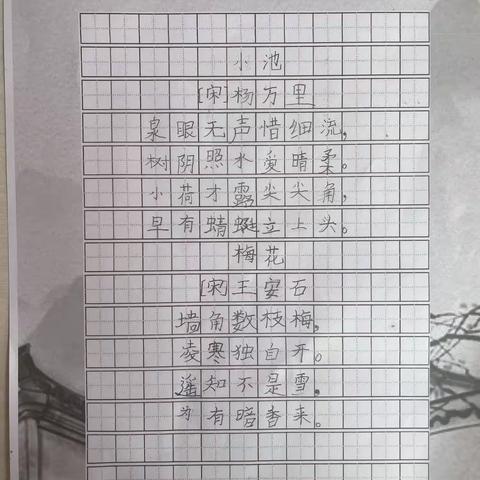 小池
[宋]杨万里
泉眼无声惜细流,
树阴照水爱晴柔。
小荷才露尖尖角,
早有蜻蜓立上头。
梅花
[宋]王安石
墙角数枝梅,
凌寒独自开。
遥知不是雪,
为有暗香来。